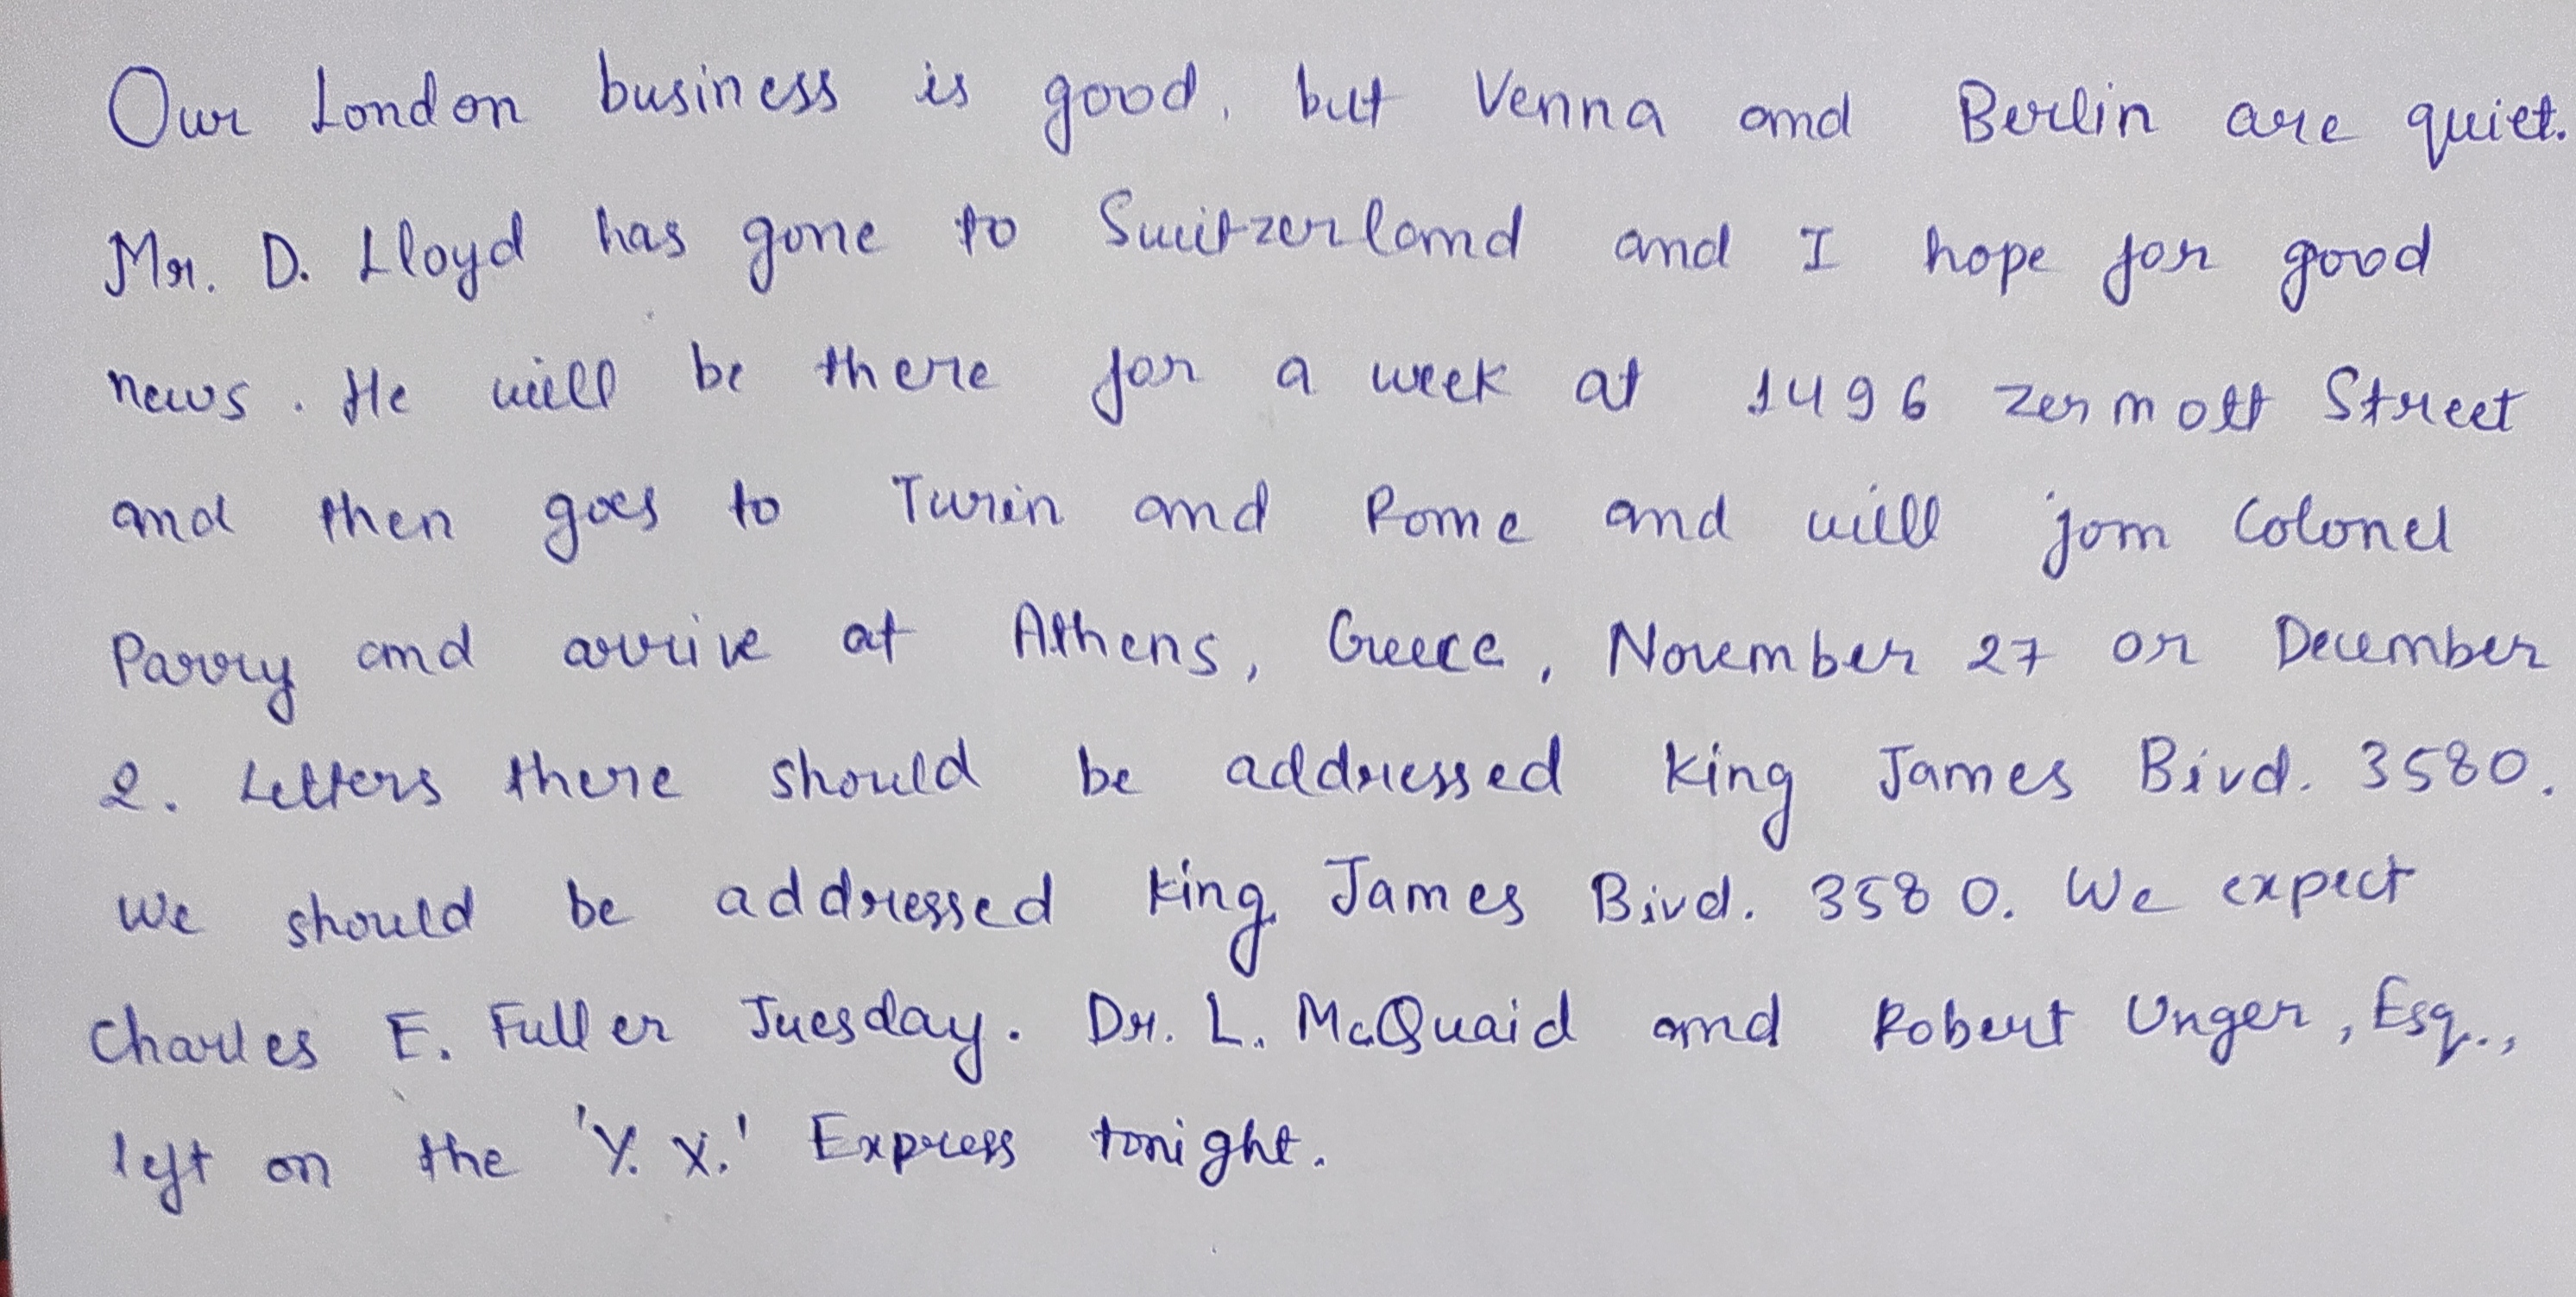 Our London business is good, but Venna and Berlin are quiet.
Mr. D. Lloyd has gone to Switzerland and I hope for good
news. He will be there for a week at 1496 Zermott Street
and then goes to Turin and Rome and will jom Colonel
Parry and arrive at Athens, Greece, November 27 or December
2. Letters there should be addressed King James Bivd. 3580.
We should be addressed King James Bivd. 3580. We expect
Charles E. Fuller Tuesday. Dr. L. McQuaid and Robert Unger, Esq.,
left on the 'Y. X.' Express tonight.